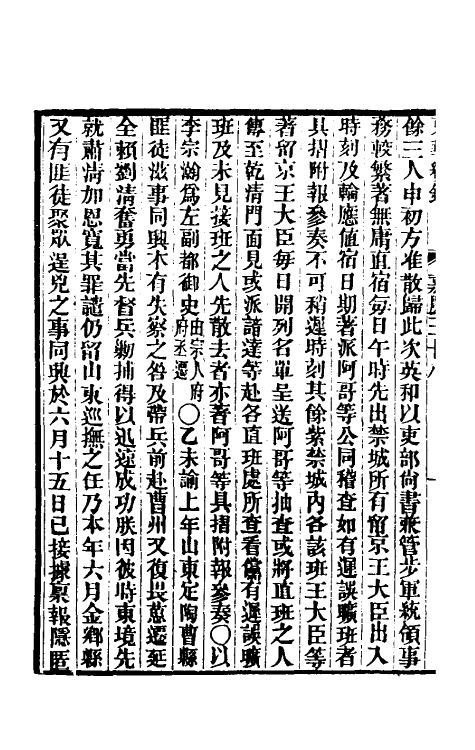 餘三人申初方准散歸此次英和以吏部尙書兼管步軍統領事
務較繁著無庸直宿每日午時先出禁城所有留京王大臣出入
時刻及輪應値宿日期著派阿哥等公同稽查如有遲誤曠班者
具摺附報參奏不可稍遲時刻其餘紫禁城內各該班王大臣等
著留京王大臣每日開列名單呈送阿哥等抽查或將直班之人
傳至乾清門面見或派諳達等赴各直班處所查看儻有遲誤曠
班及未見接班之人先散去者亦著阿哥等具摺附報參奏〇以
李宗瀚爲左副都御史由宗人府府丞遷〇乙未諭上年山東定陶曹縣
匪徒滋事同興本有失察之咎及帶兵前赴曹州又復畏葸遷延
全賴劉清奮勇當先督兵勦捕得以迅速成功朕因彼時東境先
就肅清加恩寬其罪譴仍留山東巡撫之任乃本年六月金鄉縣
又有匪徒聚眾逞兇之事同興於六月十五日已接據稟報隱匿